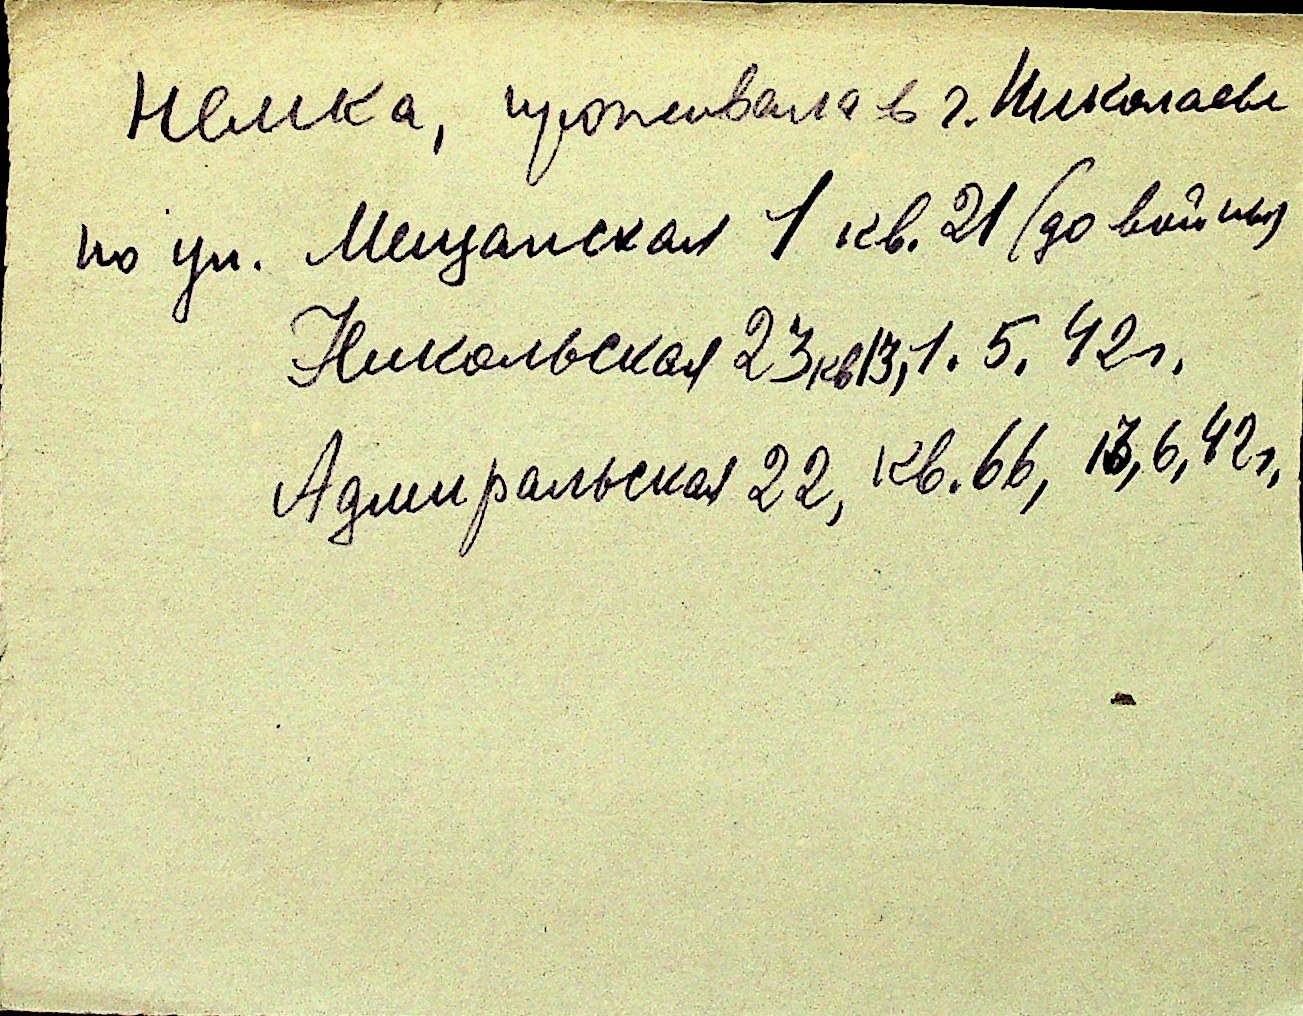 Немка, проживала в г. Николаеве
по ул. Мещанская 1 кв. 21 (до войны)
Никольская 23 кв 13, 1. 5. 42 г.
Адмиральская 22, кв. 66, 6, 42 г,